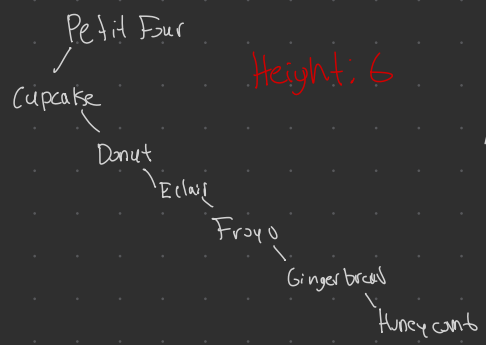 Petit Four
Height: 6
Cupcake
Donut
Eclair
Froyo
Gingerbread
Honeycomb